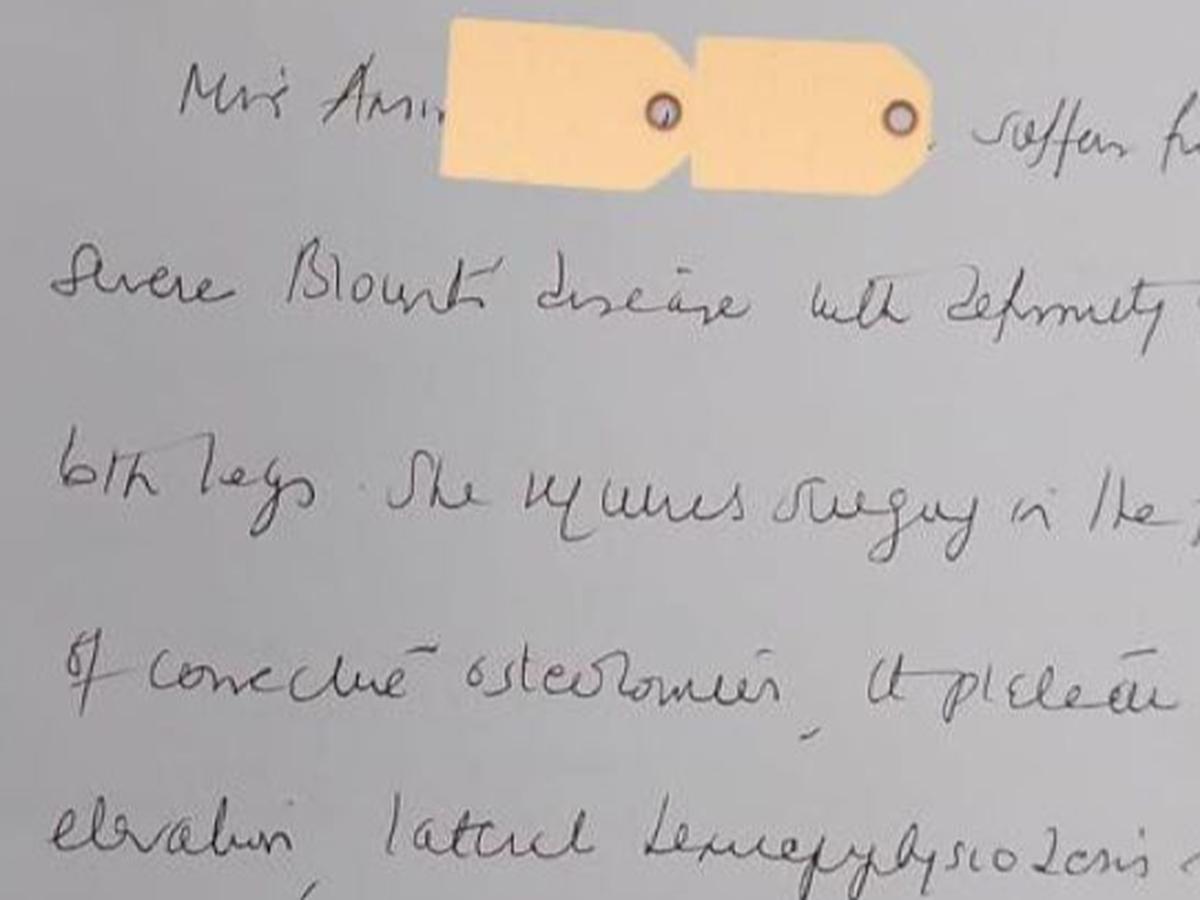 Miss suffers
severe Blount's disease with deformity
both legs. She requires surgery in the
of corrective osteotomies, lt plateau
elevation, lateral hemiepiphysiodesis